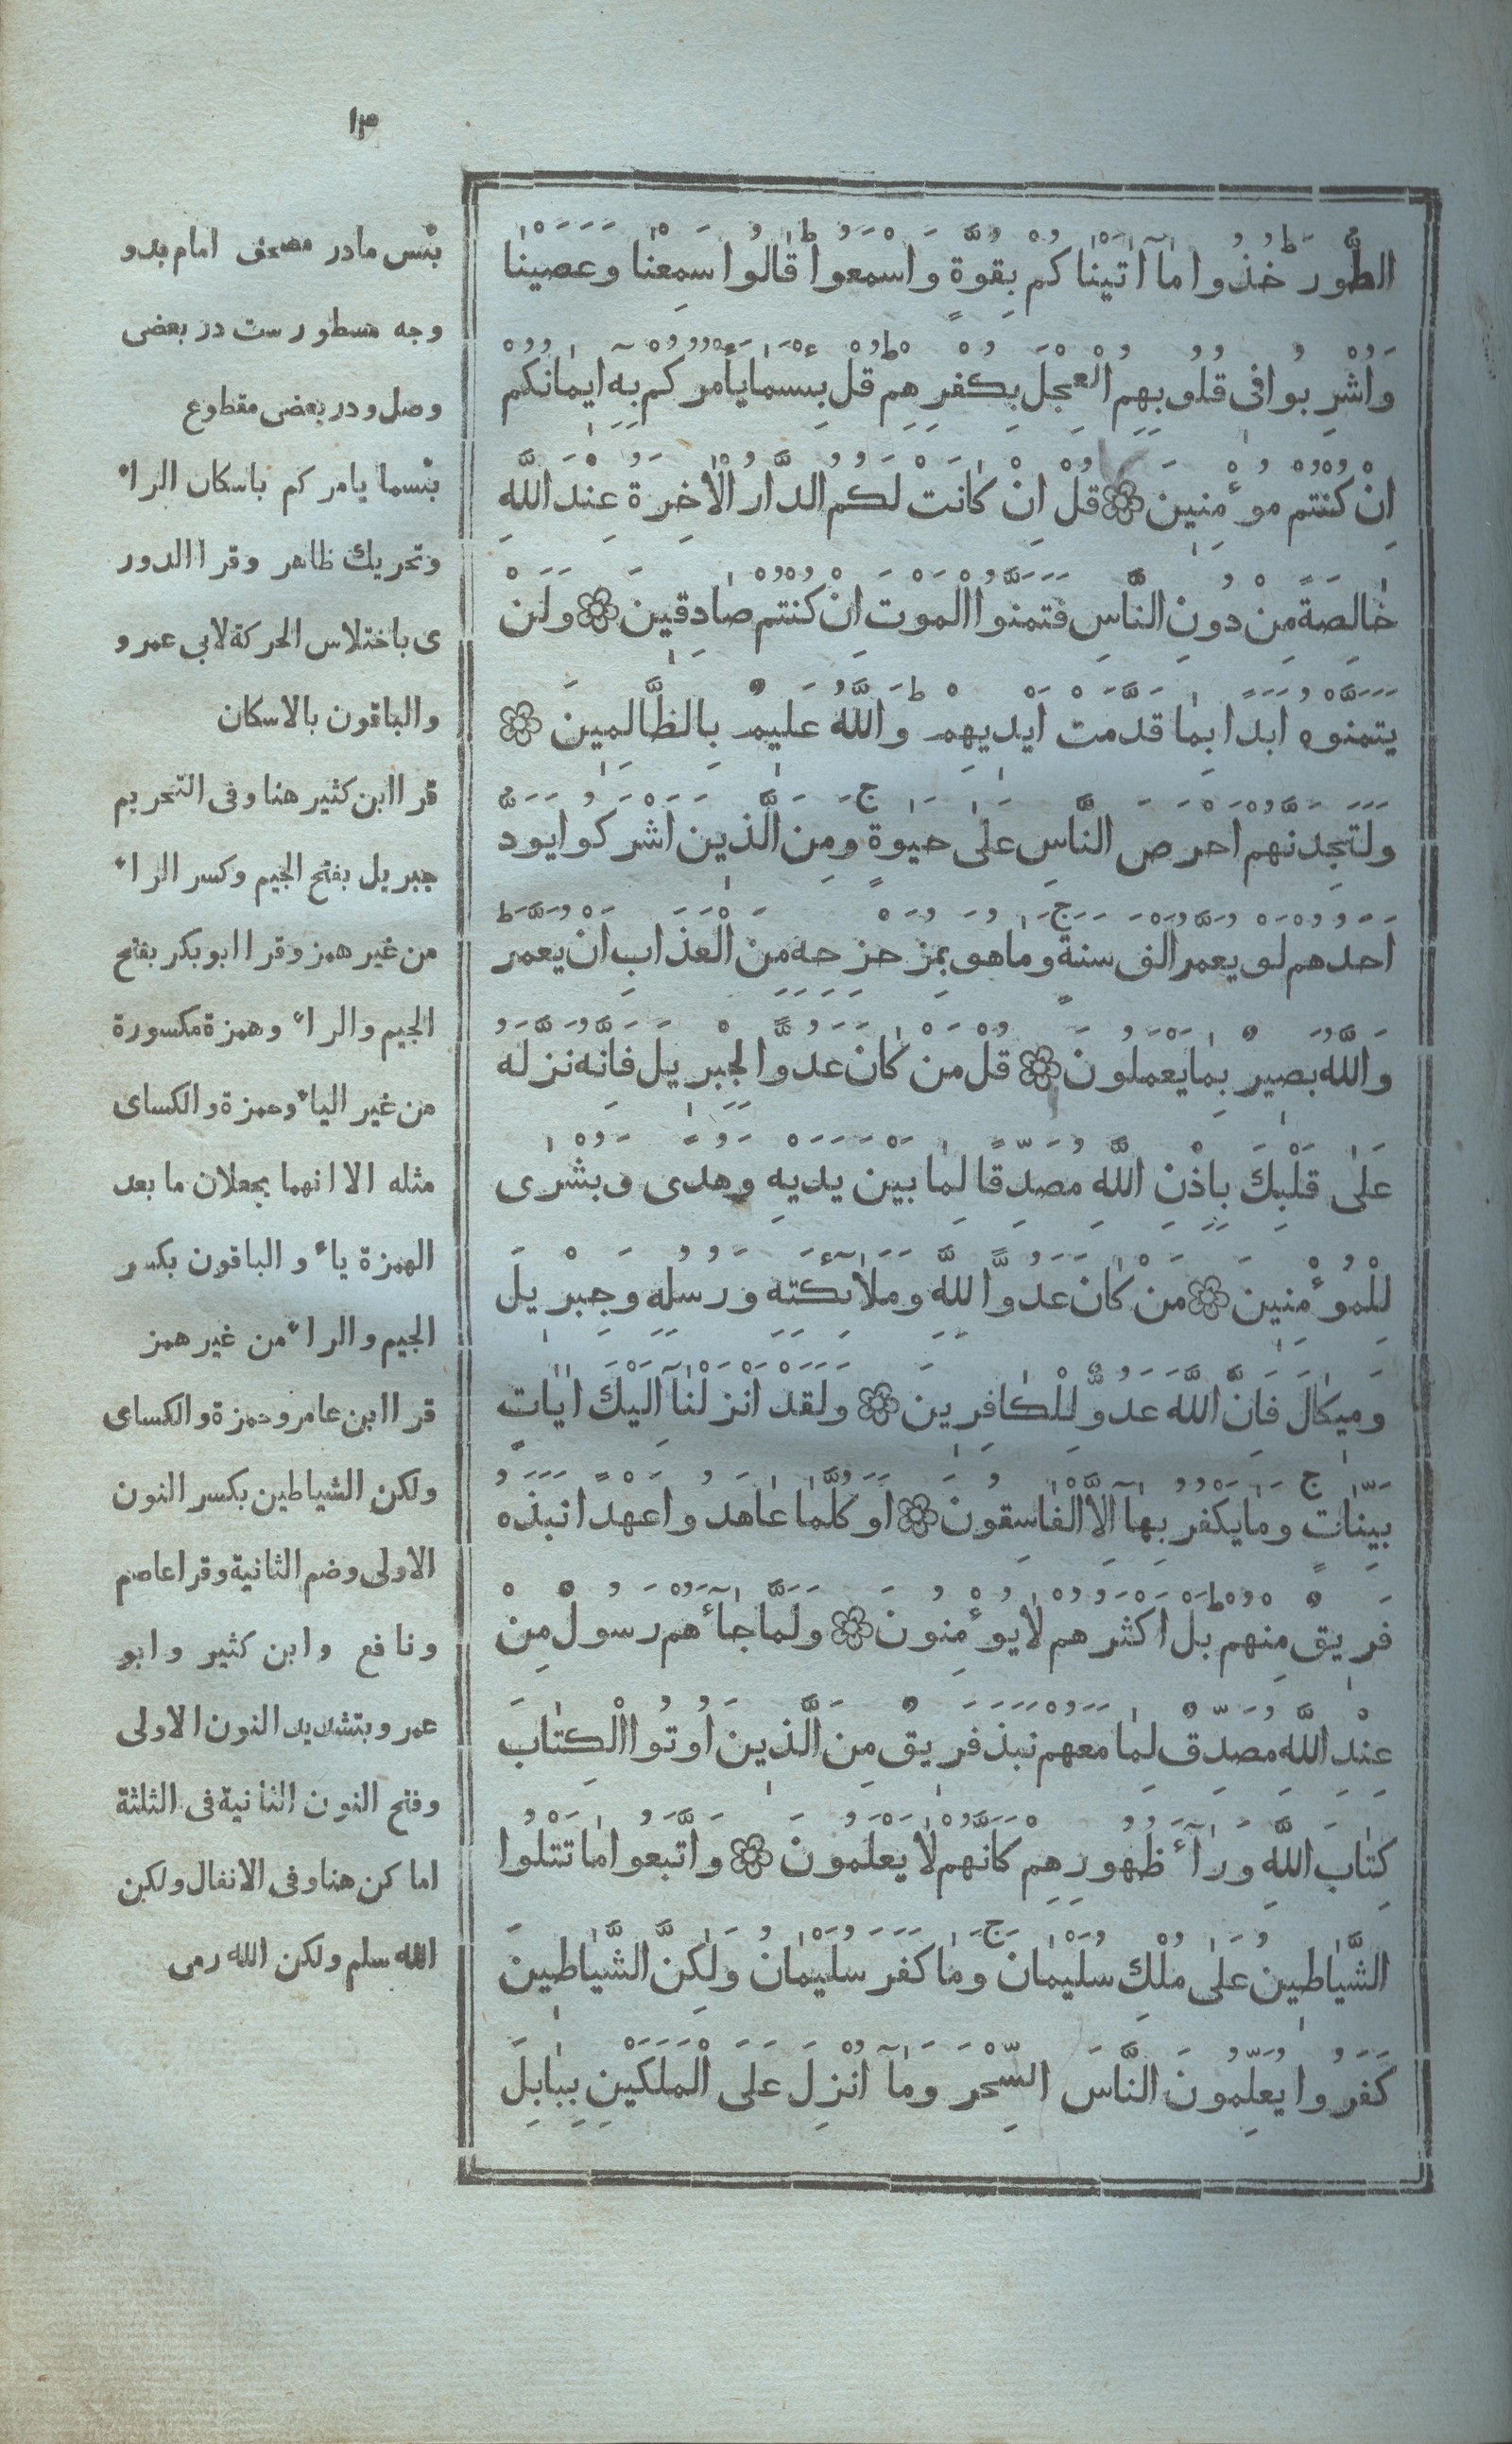 ١٣
الطُّورَ خُذُوا مَٓا اٰتَيْنَاكُمْ بِقُوَّةٍ وَاسْمَعُواؕ قَالُوا سَمِعْنَا وَعَصَيْنَا
وَاُشْرِبُوا فِى قُلُوبِهِمُ الْعِجْلَ بِكُفْرِهِمْؕ قُلْ بِئْسَمَا يَأْمُرُكُمْ بِهٖٓ اِيمَانُكُمْ
اِنْ كُنْتُمْ مُؤْمِنِينَ ۝ قُلْ اِنْ كَانَتْ لَكُمُ الدَّارُ الْاٰخِرَةُ عِنْدَ اللَّهِ
خَالِصَةً مِنْ دُونِ النَّاسِ فَتَمَنَّوُا الْمَوْتَ اِنْ كُنْتُمْ صَادِقِينَ ۝ وَلَنْ
يَتَمَنَّوْهُ اَبَدًا بِمَا قَدَّمَتْ اَيْدِيهِمْؕ وَاللَّهُ عَلِيمٌ بِالظَّالِمِينَ ۝
وَلَتَجِدَنَّهُمْ اَحْرَصَ النَّاسِ عَلٰى حَيٰوةٍۚ وَمِنَ الَّذِينَ اَشْرَكُوا يَوَدُّ
اَحَدُهُمْ لَوْ يُعَمَّرُ اَلْفَ سَنَةٍۚ وَمَا هُوَ بِمُزَحْزِحِهٖ مِنَ الْعَذَابِ اَنْ يُعَمَّرَؕ
وَاللَّهُ بَصِيرٌ بِمَا يَعْمَلُونَ ۝ قُلْ مَنْ كَانَ عَدُوًّا لِجِبْرِيلَ فَاِنَّهُ نَزَّلَهُ
عَلٰى قَلْبِكَ بِاِذْنِ اللَّهِ مُصَدِّقًا لِمَا بَيْنَ يَدَيْهِ وَهُدًى وَبُشْرٰى
لِلْمُؤْمِنِينَ ۝ مَنْ كَانَ عَدُوًّا لِلَّهِ وَمَلَآئِكَتِهٖ وَرُسُلِهٖ وَجِبْرِيلَ
وَمِيكَالَ فَاِنَّ اللَّهَ عَدُوٌّ لِلْكَافِرِينَ ۝ وَلَقَدْ اَنْزَلْنَآ اِلَيْكَ اٰيَاتٍ
بَيِّنَاتٍۚ وَمَا يَكْفُرُ بِهَآ اِلَّا الْفَاسِقُونَ ۝ اَوَكُلَّمَا عَاهَدُوا عَهْدًا نَبَذَهُ
فَرِيقٌ مِنْهُمْؕ بَلْ اَكْثَرُهُمْ لَا يُؤْمِنُونَ ۝ وَلَمَّا جَآءَهُمْ رَسُولٌ مِنْ
عِنْدِ اللَّهِ مُصَدِّقٌ لِمَا مَعَهُمْ نَبَذَ فَرِيقٌ مِنَ الَّذِينَ اُوتُوا الْكِتَابَ
كِتَابَ اللَّهِ وَرَآءَ ظُهُورِهِمْ كَاَنَّهُمْ لَا يَعْلَمُونَ ۝ وَاتَّبَعُوا مَا تَتْلُوا
الشَّيَاطِينُ عَلٰى مُلْكِ سُلَيْمَانَۚ وَمَا كَفَرَ سُلَيْمَانُ وَلٰكِنَّ الشَّيَاطِينَ
كَفَرُوا يُعَلِّمُونَ النَّاسَ السِّحْرَ وَمَآ اُنْزِلَ عَلَى الْمَلَكَيْنِ بِبَابِلَ
بئس ما در مصحف امام بدو
وجه مسطورست در بعضى
وصل و در بعضى مقطوع
بئسما يامركم باسكان الراء
وتحريك ظاهر وقرا الدور
ى باختلاس الحركة لابى عمرو
والباقون بالاسكان
قرا ابن كثير هنا وفى التحريم
جبريل بفتح الجيم وكسر الراء
من غير همز وقرا ابو بكر بفتح
الجيم والراء وهمزة مكسورة
من غير الياء وحمزة والكساى
مثله الا انهما يجعلان ما بعد
الهمزة ياء و الباقون بكسر
الجيم والراء من غير همز
قرا ابن عامر وحمزة والكساى
ولكن الشياطين بكسر النون
الاولى وضم الثانية وقرا عاصم
ونافع وابن كثير وابو
عمرو بتشديد النون الاولى
وفتح النون الثانية فى الثلثة
اماكن هنا وفى الانفال ولكن
الله سلم ولكن الله رمى